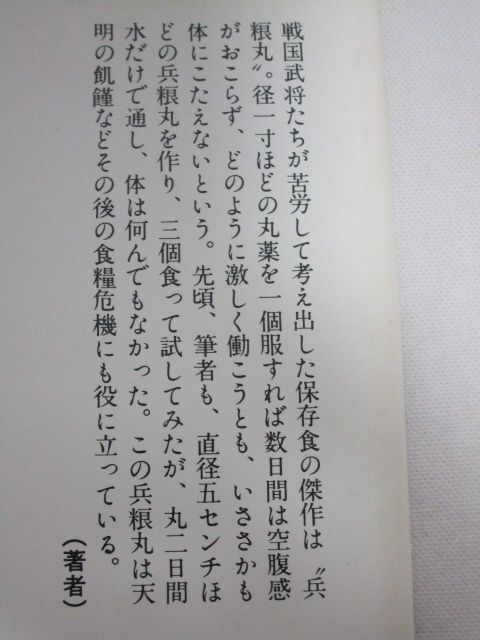 戦国武将たちが苦労して考え出した保存食の傑作は〝兵
粮丸〟。径一寸ほどの丸薬を一個服すれば数日間は空腹感
がおこらず、どのように激しく働こうとも、いささかも
体にこたえないという。先頃、筆者も、直径五センチほ
どの兵粮丸を作り、三個食って試してみたが、丸二日間
水だけで通し、体は何んでもなかった。この兵粮丸は天
明の飢饉などその後の食糧危機にも役に立っている。
（著者）